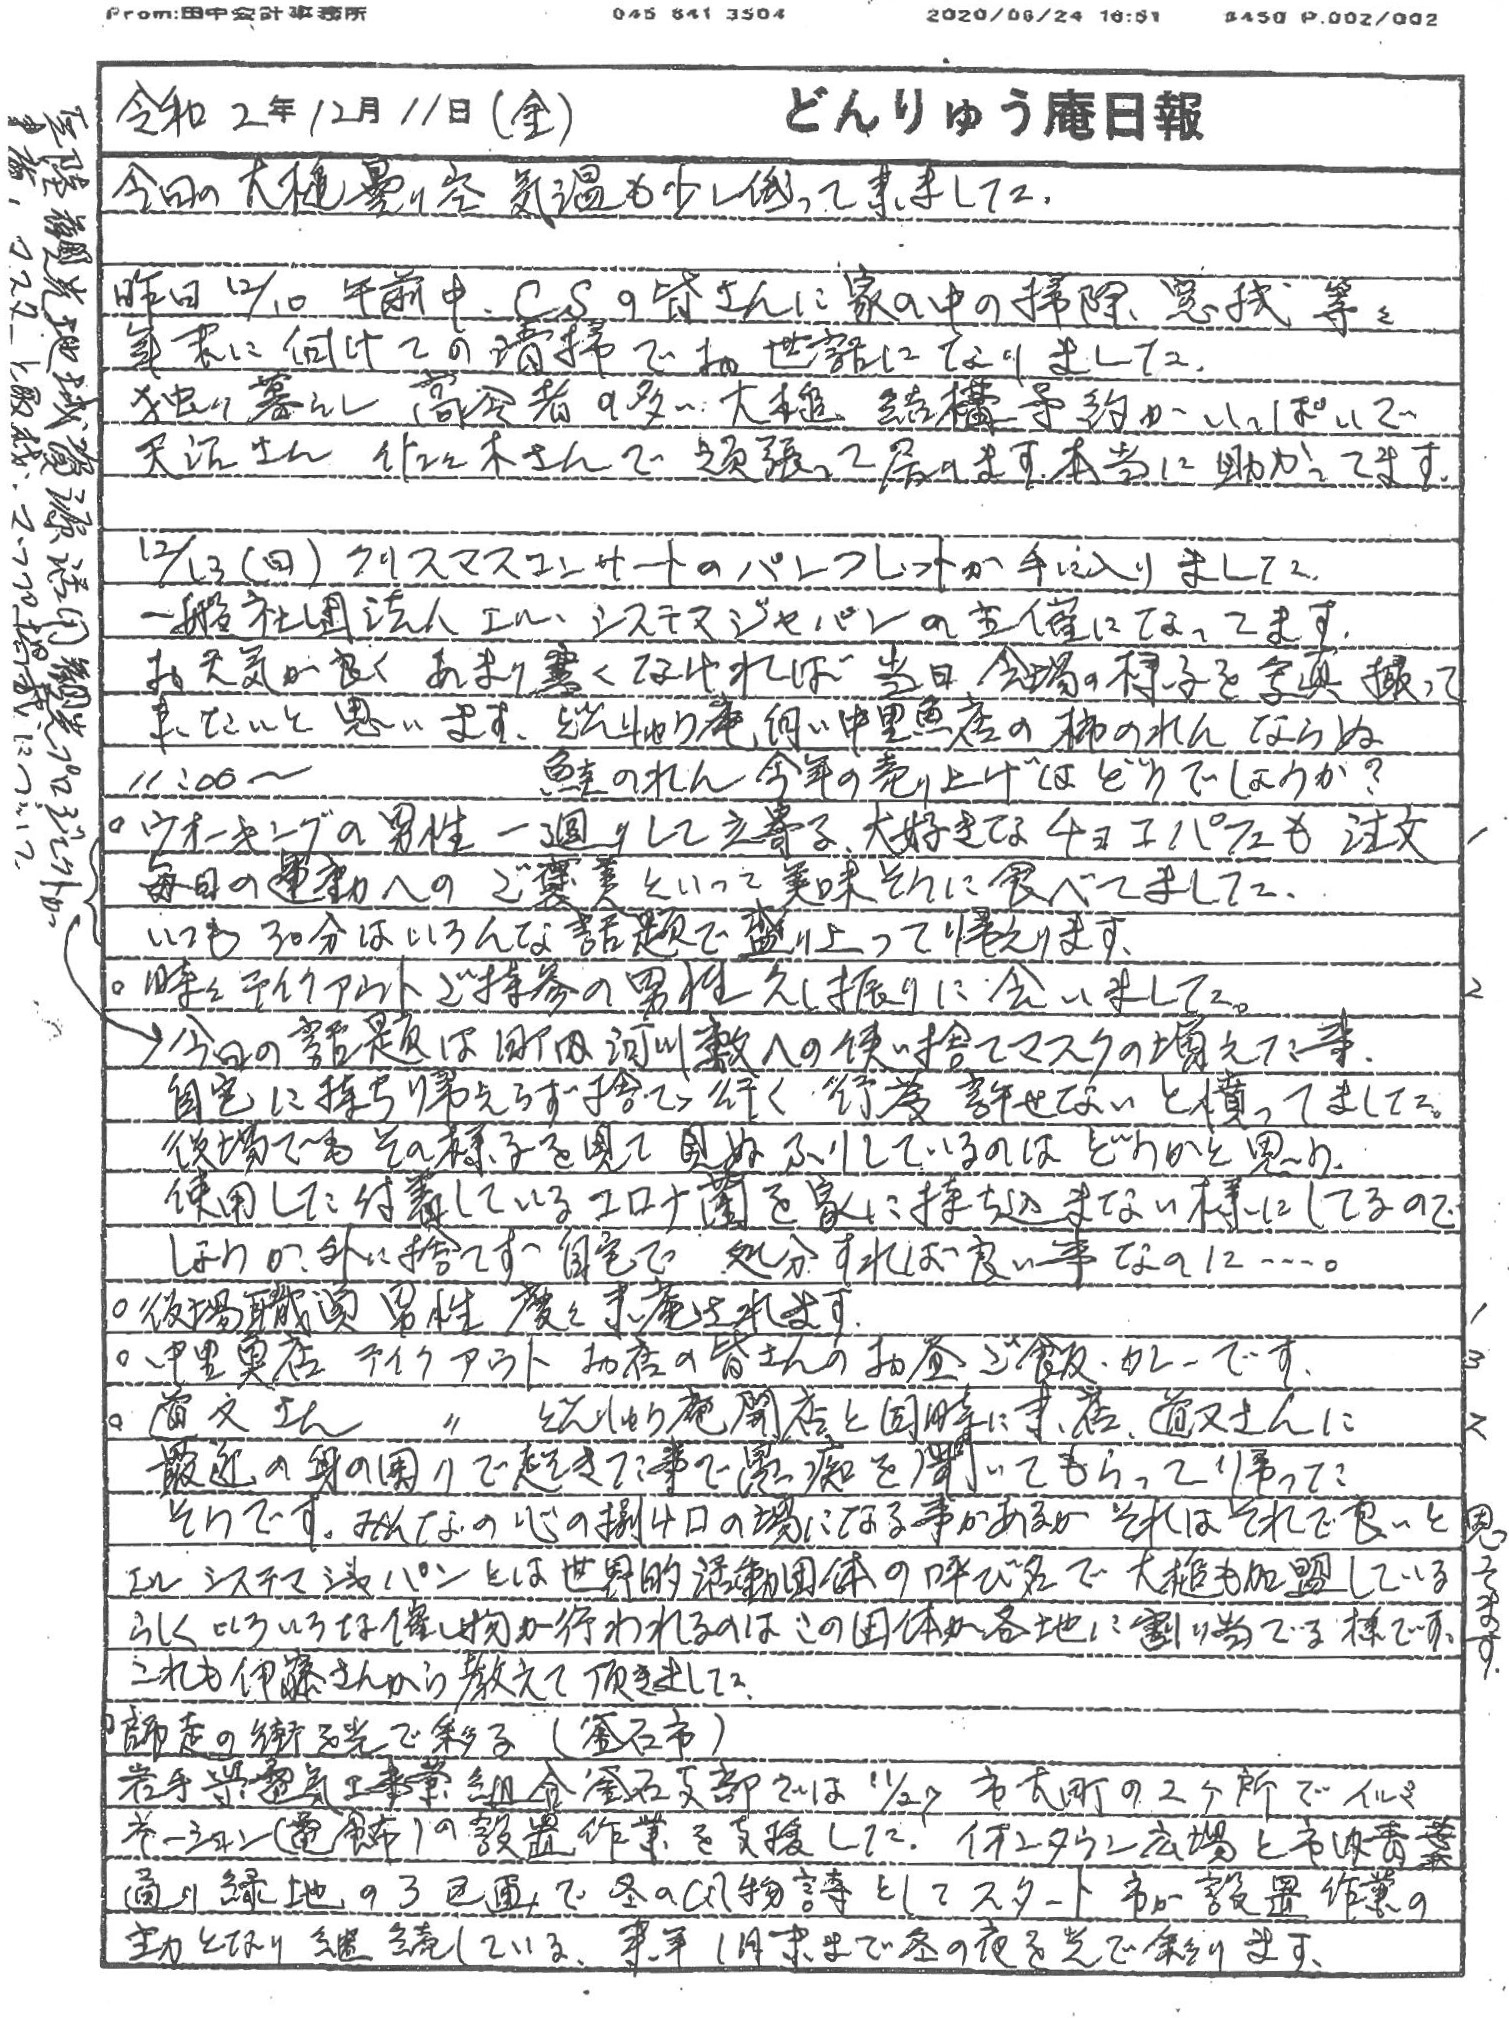 From:田中会計事務所 045 641 3504 2020/06/24 16:51 #450 P.002/002
令和2年12月11日(金) どんりゅう庵日報
今日の大槌曇り空 気温も少し低って来ました.
昨日12/10 午前中、CSの皆さんに家の中の掃除、窓拭等を
年末に向けての清掃でお世話になりました.
独り暮らし高令者の多い大槌、結構予約がいっぱいで
天沼さん 佐々木さんで頑張って居ります.本当に助かってます.
12/13(日)クリスマスコンサートのパンフレットが手に入りました.
一般社団法人 エル・システマジャパンの主催になってます.
お天気が良く あまり寒くなければ当日会場の様子を写真撮って
来たいと思います. どんりゅう庵向い中里魚店の柿のれんならぬ
11:00〜 鮭のれん今年の売り上げはどうでしょうか?
○ウオーキングの男性 一週りして立寄る、大好きなチョコパフェも注文 1
毎日の運動へのご褒美といって美味そうに食べてました.
いつも30分はいろんな話題で盛り上って帰えります.
○時々テイクアウトご持参の男性久し振りに会いました。 2
今日の話題は町内河川敷への使い捨てマスクの増えた事.
自宅に持ち帰えらず捨てゝ行く行為許せないと憤ってました。
役場でもその様子を見て見ぬふりしているのはどうかと思う.
使用した付着しているコロナ菌を家に持ち込まない様にしてるので
しょうが、外に捨てず自宅で 処分すれば良い事なのに----。
○役場職員男性 度々来庵されます. 1
○中里魚店 テイクアウト お店の皆さんのお昼ご飯.カレーです. 3
○ 道又さん 〃 どんりゅう庵開店と同時に来店、道又さんに 2
最近の身の周りで起きた事で愚痴を聞いてもらって帰った
そうです. みんなの心の捌け口の場になる事があるがそれはそれで良いと思ってます.
エルシステマジャパンとは世界的活動団体の呼び名で大槌も加盟している
らしくいろいろな催し物が行われるのはこの団体が各地に割り当てる様です.
これも伊藤さんから教えて頂きました.
○師走の街を光で彩る (釜石市)
岩手県電気工事業組合釜石支部では11/27 市大町の2ヶ所でイルミ
ネーション(電飾)の設置作業を支援した. イオンタウン広場と市内青葉
通り緑地の3区画で冬の風物詩としてスタート 市が設置作業の
主力となり継続している、来年1月末まで冬の夜を光で彩ります.
三陸観光地域資源活用観光プロジェクトか。